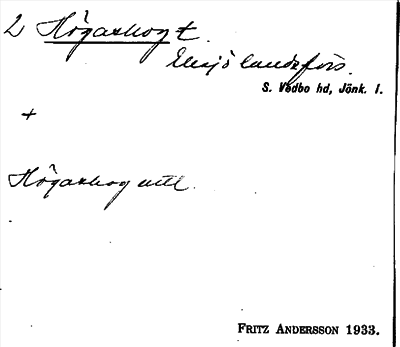 2 Högaskog t.
Eksjö landsförs.
S. Vedbo hd, Jönk. l.
+
Högaskog utt.
FRITZ ANDERSSON 1933.